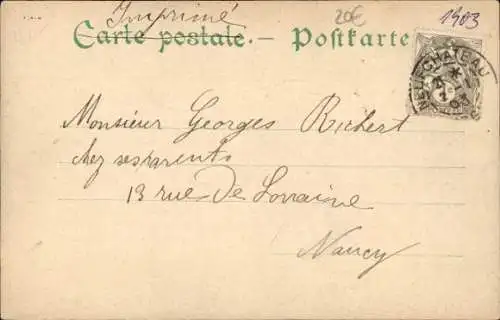 Imprimé 20€ 1903
Carte postale. — Postkarte
NEUFCHATEAU
Monsieur Georges Richert
chez ses parents
13 rue de Lorraine
Nancy